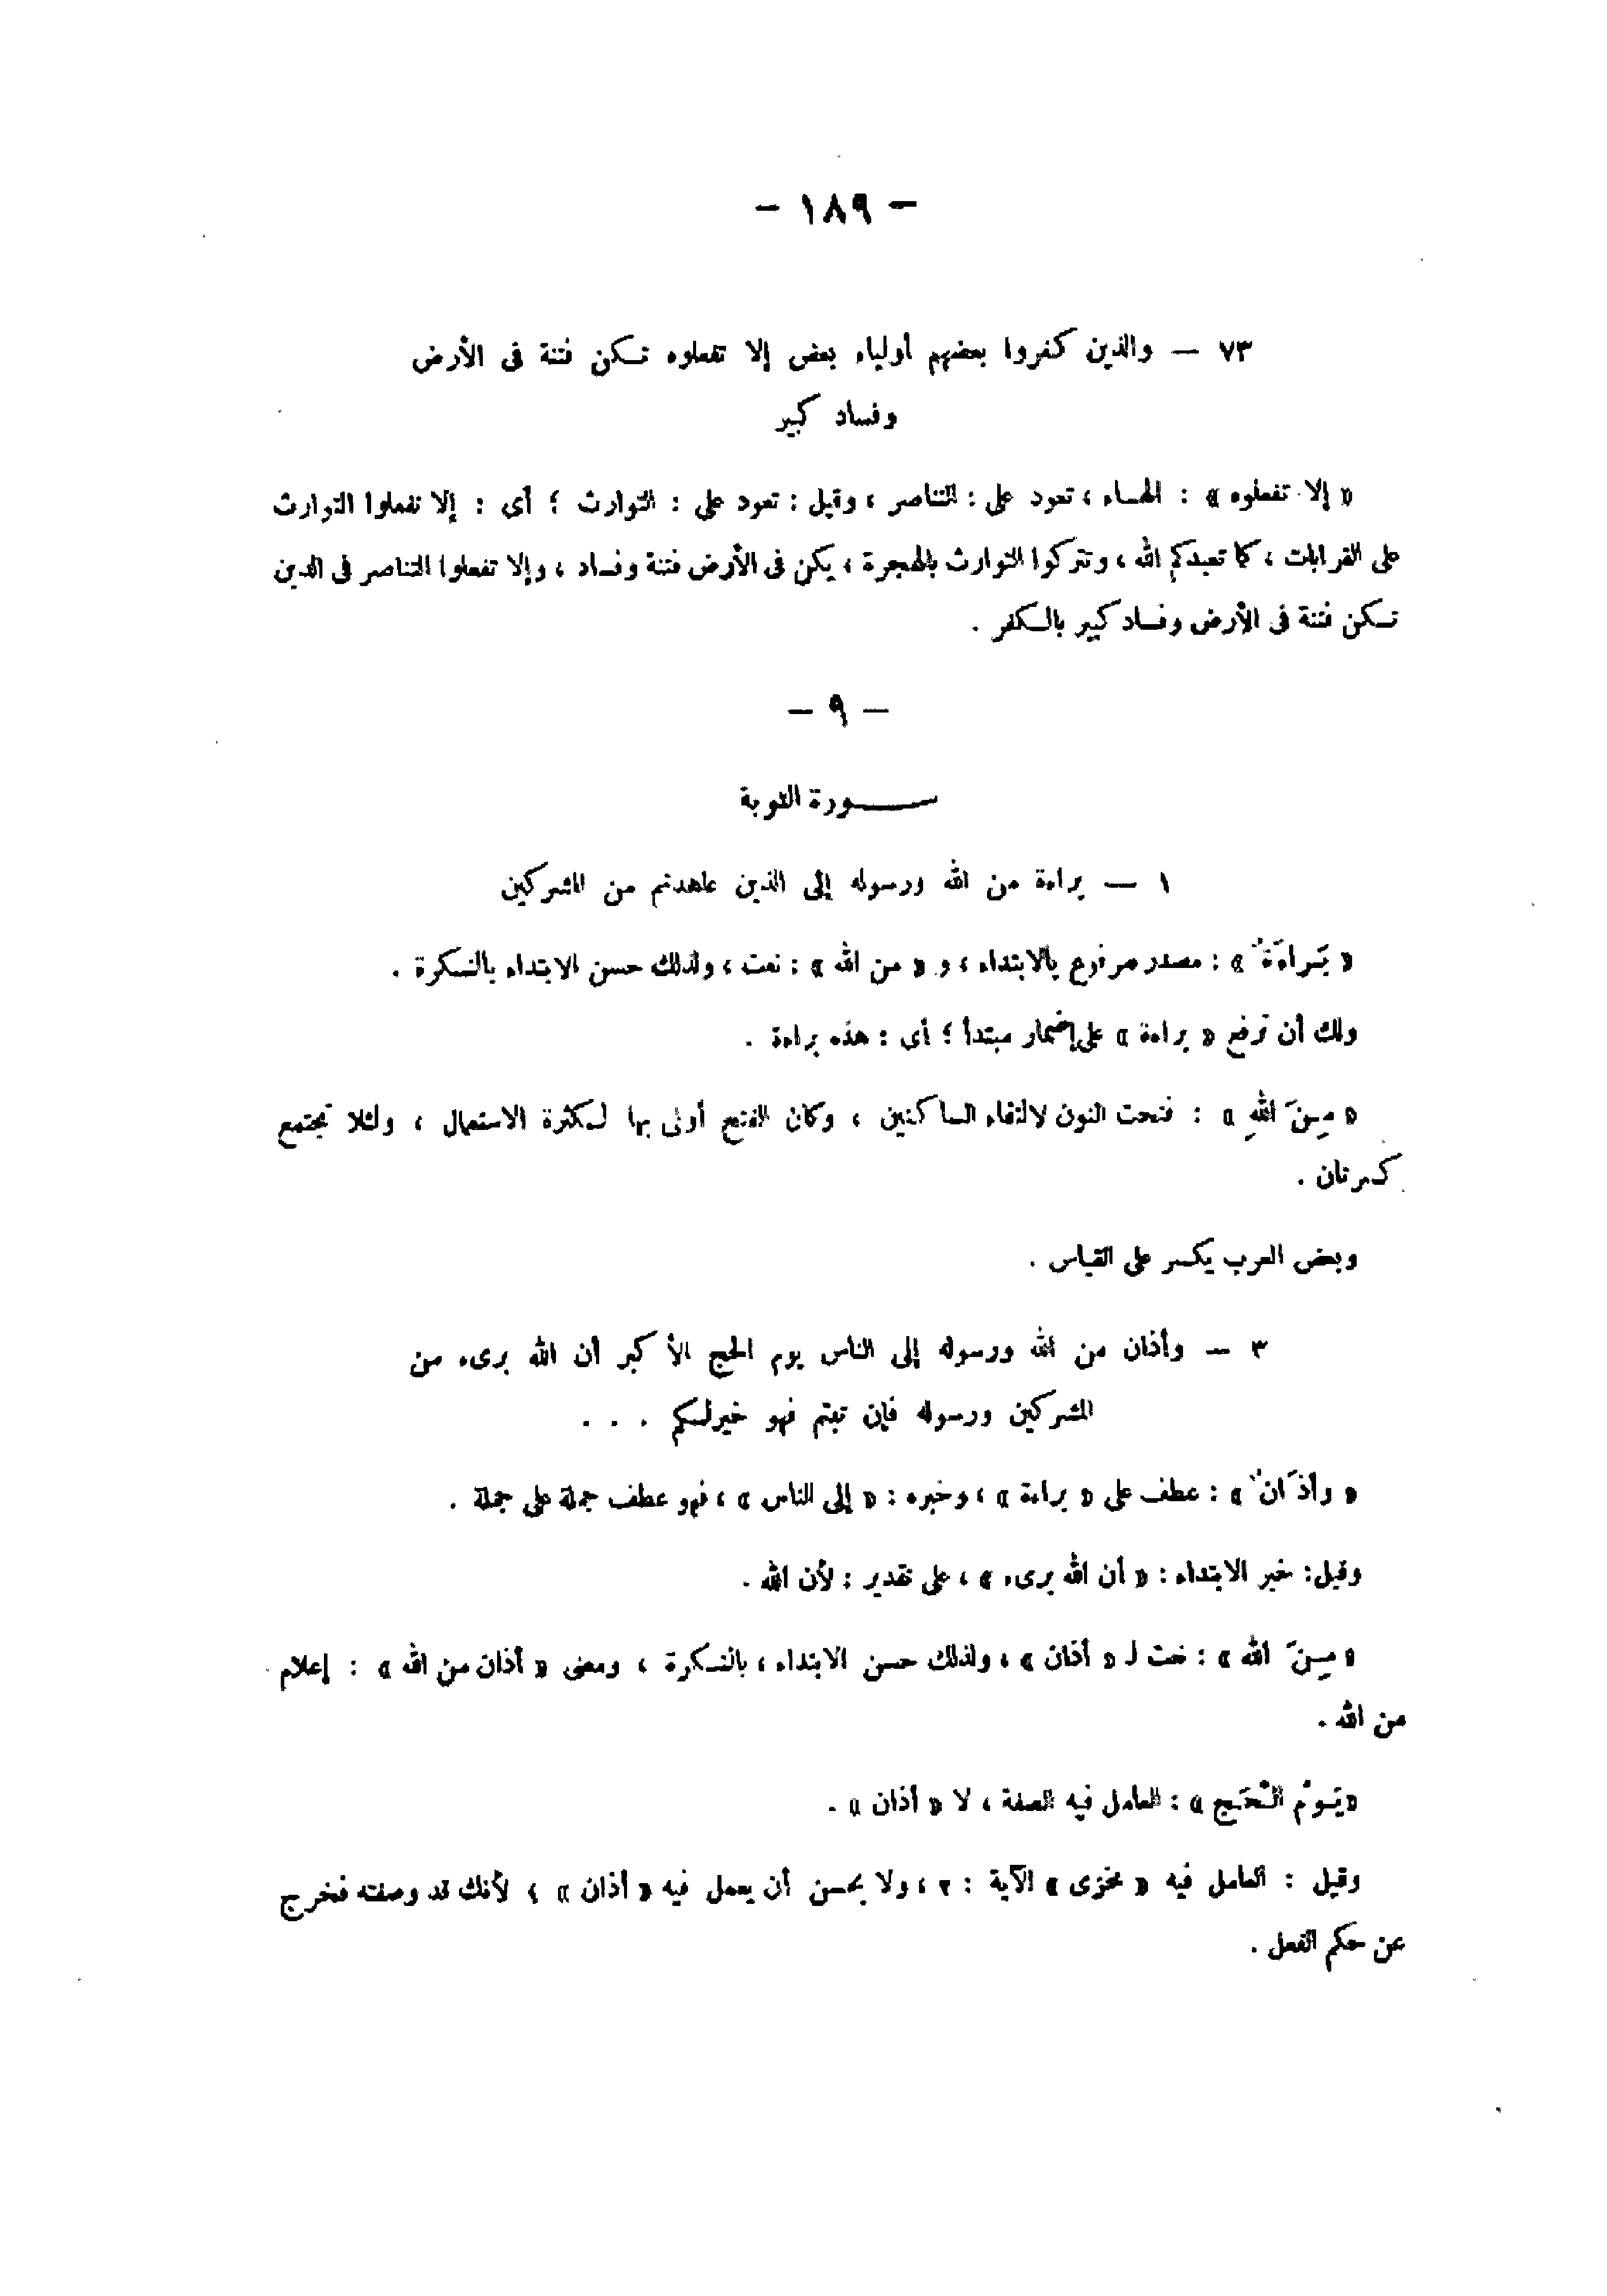 - ١٨٩ -
٧٣ — والذين كفروا بعضهم أولياء بعض إلا تفعلوه تكن فتنة فى الأرض
وفساد كبير
« إلا تفعلوه » : الهاء ، تعود على : التناصر ، وقيل : تعود على : التوارث ؛ أى : إلا تفعلوا التوارث
على القرابات ، كما تعبدكم الله ، وتتركوا التوارث بالهجرة ، يكن فى الأرض فتنة وفساد ، وإلا تفعلوا التناصر فى الدين
تكن فتنة فى الأرض وفساد كبير بالكفر .
- ٩ -
سورة التوبة
١ — براءة من الله ورسوله إلى الذين عاهدتم من المشركين
« بَراءَةٌ » : مصدر مرفوع بالابتداء ، و « من الله » : نعت ، ولذلك حسن الابتداء بالنكرة .
ولك أن ترفع « براءة » على إضمار مبتدأ ؛ أى : هذه براءة .
« مِنَ اللهِ » : فتحت النون لالتقاء الساكنين ، وكان الفتح أولى بها لكثرة الاستعمال ، ولئلا تجتمع
كسرتان .
وبعض العرب يكسر على القياس .
٣ — وأذان من الله ورسوله إلى الناس يوم الحج الأكبر أن الله برىء من
المشركين ورسوله فإن تبتم فهو خير لكم . . .
« وأذَانٌ » : عطف على « براءة » ، وخبره : « إلى الناس » ، فهو عطف جملة على جملة .
وقيل : خبر الابتداء : « أن الله برىء » ، على تقدير : لأن الله .
« مِنَ الله » : نعت لـ « أذان » ، ولذلك حسن الابتداء ، بالنكرة ، ومعنى « أذان من الله » : إعلام
من الله .
« يَوْمُ الْحَج » : العامل فيه الصفة ، لا « أذان » .
وقيل : العامل فيه « مخزى » الآية : ٢ ، ولا يحسن أن يعمل فيه « أذان » ، لأنك قد وصفته فخرج
عن حكم الفعل .